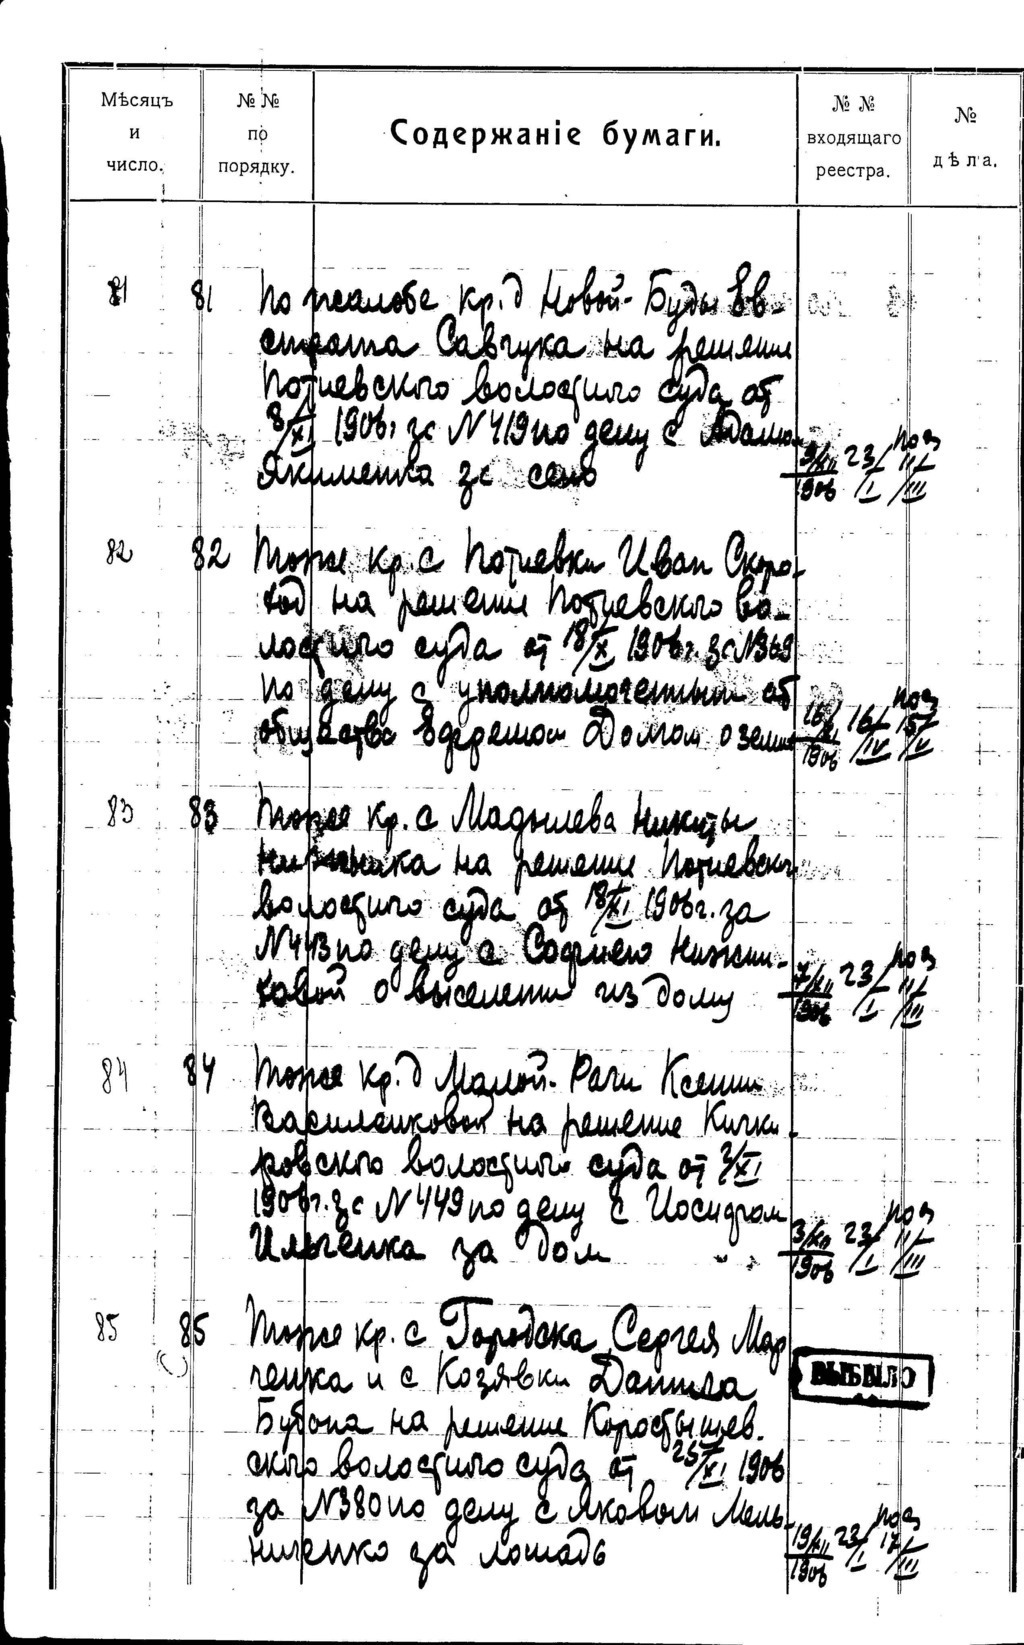 Мѣсяцъ и число.
№№ по порядку.
Содержаніе бумаги.
№ № входящаго реестра.
№ дѣла.
81 81 По жалобе кр. д Новой-Буды Ев-
страта Савчука на решение
Потиевского волостного суда от
8/XI 1906 г за N 419 по делу с Адамо
Якименка за сено
9/XII 1906 23/I поз 11/III
82 82 Тоже кр. с Потиевки Иван Скоро-
ход на решение Потиевского во-
лостного суда от 18/X 1906 г. за N 369
по делу с уполномоченным от
общества о земли
16/XI 1906 16/IV поз 15/V
83 83 Тоже кр. с Мадылева Никиты
на решение Потиевског
волостного суда от 18/XI 1906 г. за
N 443 по делу с Софиею Нижни-
ковой о выселении из дому
7/XII 1906 23/I поз 11/III
84 84 Тоже кр. д Малой-Рачи Ксении
Василенковой на решение Кички-
ровского волостного суда от 2/XI
1906 г. за N 449 по делу с Иосифом
Ильченка за дом
3/XII 1906 23/I поз 11/III
85 85 Тоже кр. с Городска Сергея Мар
ченка и с Козявки Данила
Бубона на решение Коростышев-
ского волостного суда от 25/XI 1906
за N 380 по делу с Яковом Мель-
ниченко за лошадь
ВЫБЫЛО
19/XII 1906 23/I поз 17/III